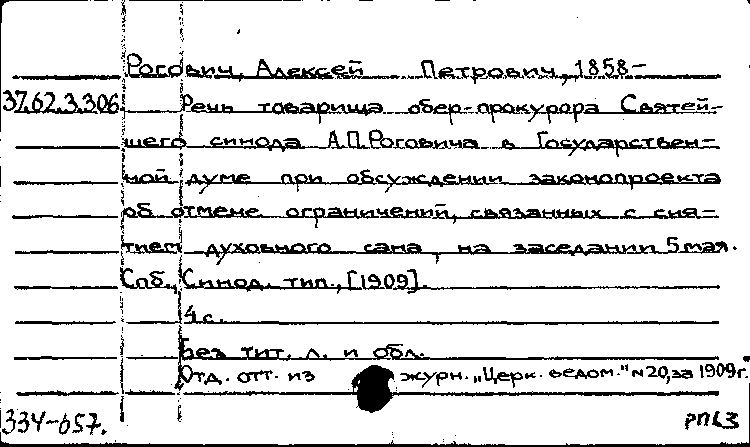 Рогович, Алексей Петрович, 1858–
37.62.3.306. Речь товарища обер-прокурора Святей-
шего синода А.П.Роговича в Государствен-
ной думе при обсуждении законопроекта
об отмене ограничений, связанных с сня-
тием духовного сана, на заседании 5 мая.
Спб., Синод. тип., [1909].
4 с.
Без тит. л. и обл.
Отд. отт. из журн. „Церк. ведом." №20, за 1909г.
334-657.